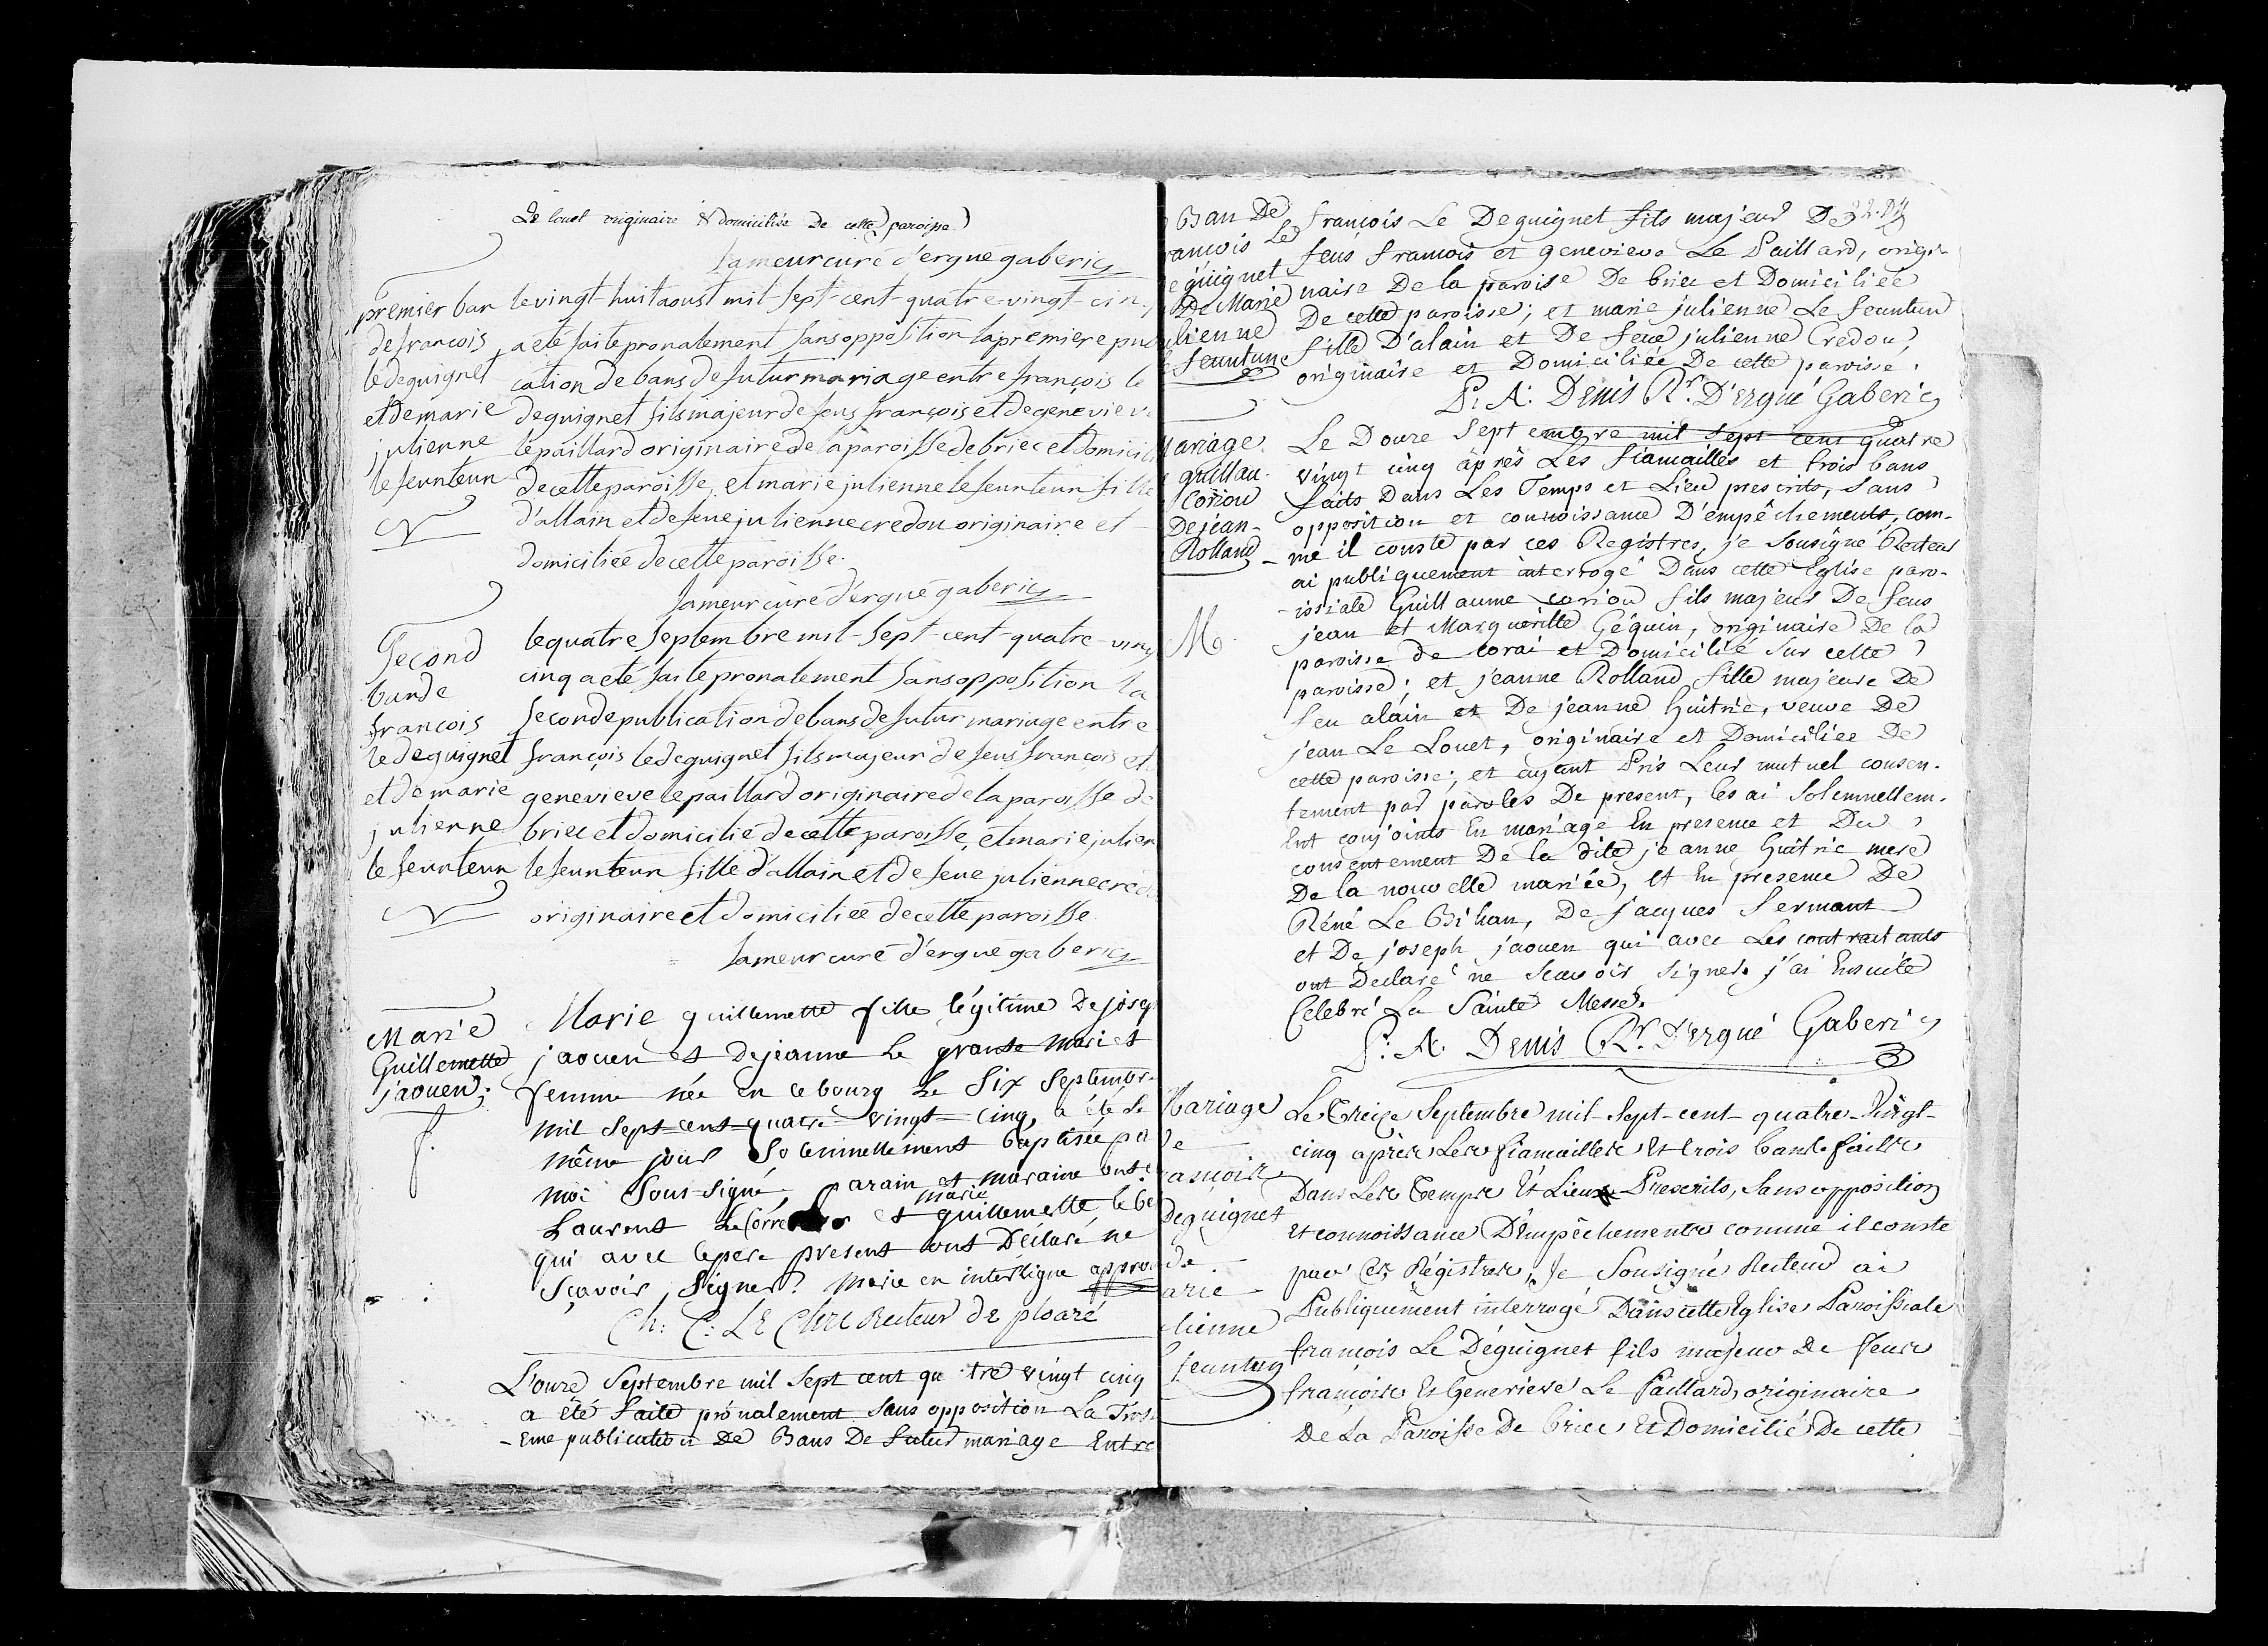 Le louet originaire & domiciliée de cette paroisse
Lameur curé d'ergué gaberic
premier ban
de françois
le deguignet
et de marie
julienne
le feunteun
le vingt-huit aoust mil-sept-cent-quatre-vingt-cinq
a eté faite pronalement sans opposition la premiere pu
cation de bans de futur mariage entre françois le
deguignet fils majeur de feus françois et de genevieve
le paillard originaire de la paroisse de briec et domici
de cette paroisse, et marie julienne le feunteun fille
d'allain et de feue julienne credou originaire et
domiciliée de cette paroisse.
Lameur curé d'ergué gaberic
Second
ban de
françois
le deguignet
et de marie
julienne
le feunteun
le quatre septembre mil-sept-cent-quatre-ving
cinq a eté faite pronalement sans opposition la
seconde publication de bans de futur mariage entre
françois le deguignet fils majeur de feus françois et
genevieve le paillard originaire de la paroisse de
briec et domicilié de cette paroisse, et marie julien
le feunteun fille d'allain et de feue julienne cred
originaire et domiciliée de cette paroisse.
Lameur curé d'ergué gaberic
Marie
Guillemette
jaouen;
f.
Marie guillemette fille légitime De josep
jaouen et de jeanne le grante mari et
femme née en ce bourg le Six Septembre
mil sept-cent-quatre-vingt-cinq, a été le
même jour Solemnellement baptisée pa
moi Sous-signé, parain et maraine ont e
marie
Laurent Le Corre et guillemette le be
qui avec le pere present ont Déclaré ne
Sçavoir Signer. Marie en interligne approu
Ch: C: LE Clerc Recteur de ploaré
L'onze Septembre mil Sept cent quatre vingt cinq
a été faite prônalement Sans opposition La Trois
-Eme publication De Bans De futur mariage Entre
Ban De
ançois Le
eguignet
De Marie
lienne
feuntune
françois Le Deguignet fils majeur De
feus françois et genevieve Le Paillard, origi-
naire De la paroise De briec et Domiciliée
De cette paroisse; et marie julienne Le feuntun
fille D'alain et De feue julienne Credou,
originaire et Domiciliée De cette paroisse.
P: A: Denis Rr. D'ergué Gaberic
Mariage
guillau-
Coriou
De jean-
Rolland
M.
Le Douze Septembre mil Sept cent quatre
vingt cinq après Les fiancailles et trois bans
faits Dans Les Temps et Lieu prescrits, Sans
opposition et connoissance D'empêchements, com-
me il conste par ces Registres, je Sousigné Recteur
ai publiquement interrogé Dans cette Eglise paro-
-issiale Guillaume coriou fils majeur De feus
jean et Marguerite Géquin, originaire De la
paroisse de Corai et Domicilié Sur cette
paroisse; et jeanne Rolland fille majeure De
feu alain et De jeanne Guîtric, veuve De
jean Le Louet, originaire et Domiciliée De
cette paroisse; et ayant Pris Leur mutuel consen-
tement par paroles De present, les ai Solemnellem-
Ent conjoints En mariage En presence et Du
consentement De la dite jeanne Guîtric mere
De la nouvelle mariée, et En presence De
Réné Le Bihan, De Jacques Sermant
et De joseph jaouen qui avec Les contractants
ont Declaré ne Scavoir Signer. j'ai Ensuite
Celebré La Sainte Messe.
P: A: Denis Rr. D'ergué Gaberic
Mariage
de
rançois
Deguignet
de
arie
lienne
feuntun
Le Treize Septembre mil Sept-cent-quatre-Vingt-
cinq après Les fiancailles Et trois bans faits
Dans Les Temps Et Lieux Prescrits, Sans opposition
Et connoissance D'Empêchements comme il conste
par Ces Régistres, Je Sousigné Recteur ai
Publiquement interrogé Dans cette Eglise Paroissiale
françois Le Déguignet fils majeur De feus
françois Et Genevieve Le Paillard, originaire
De La Paroisse De briec Et Domicilié De cette